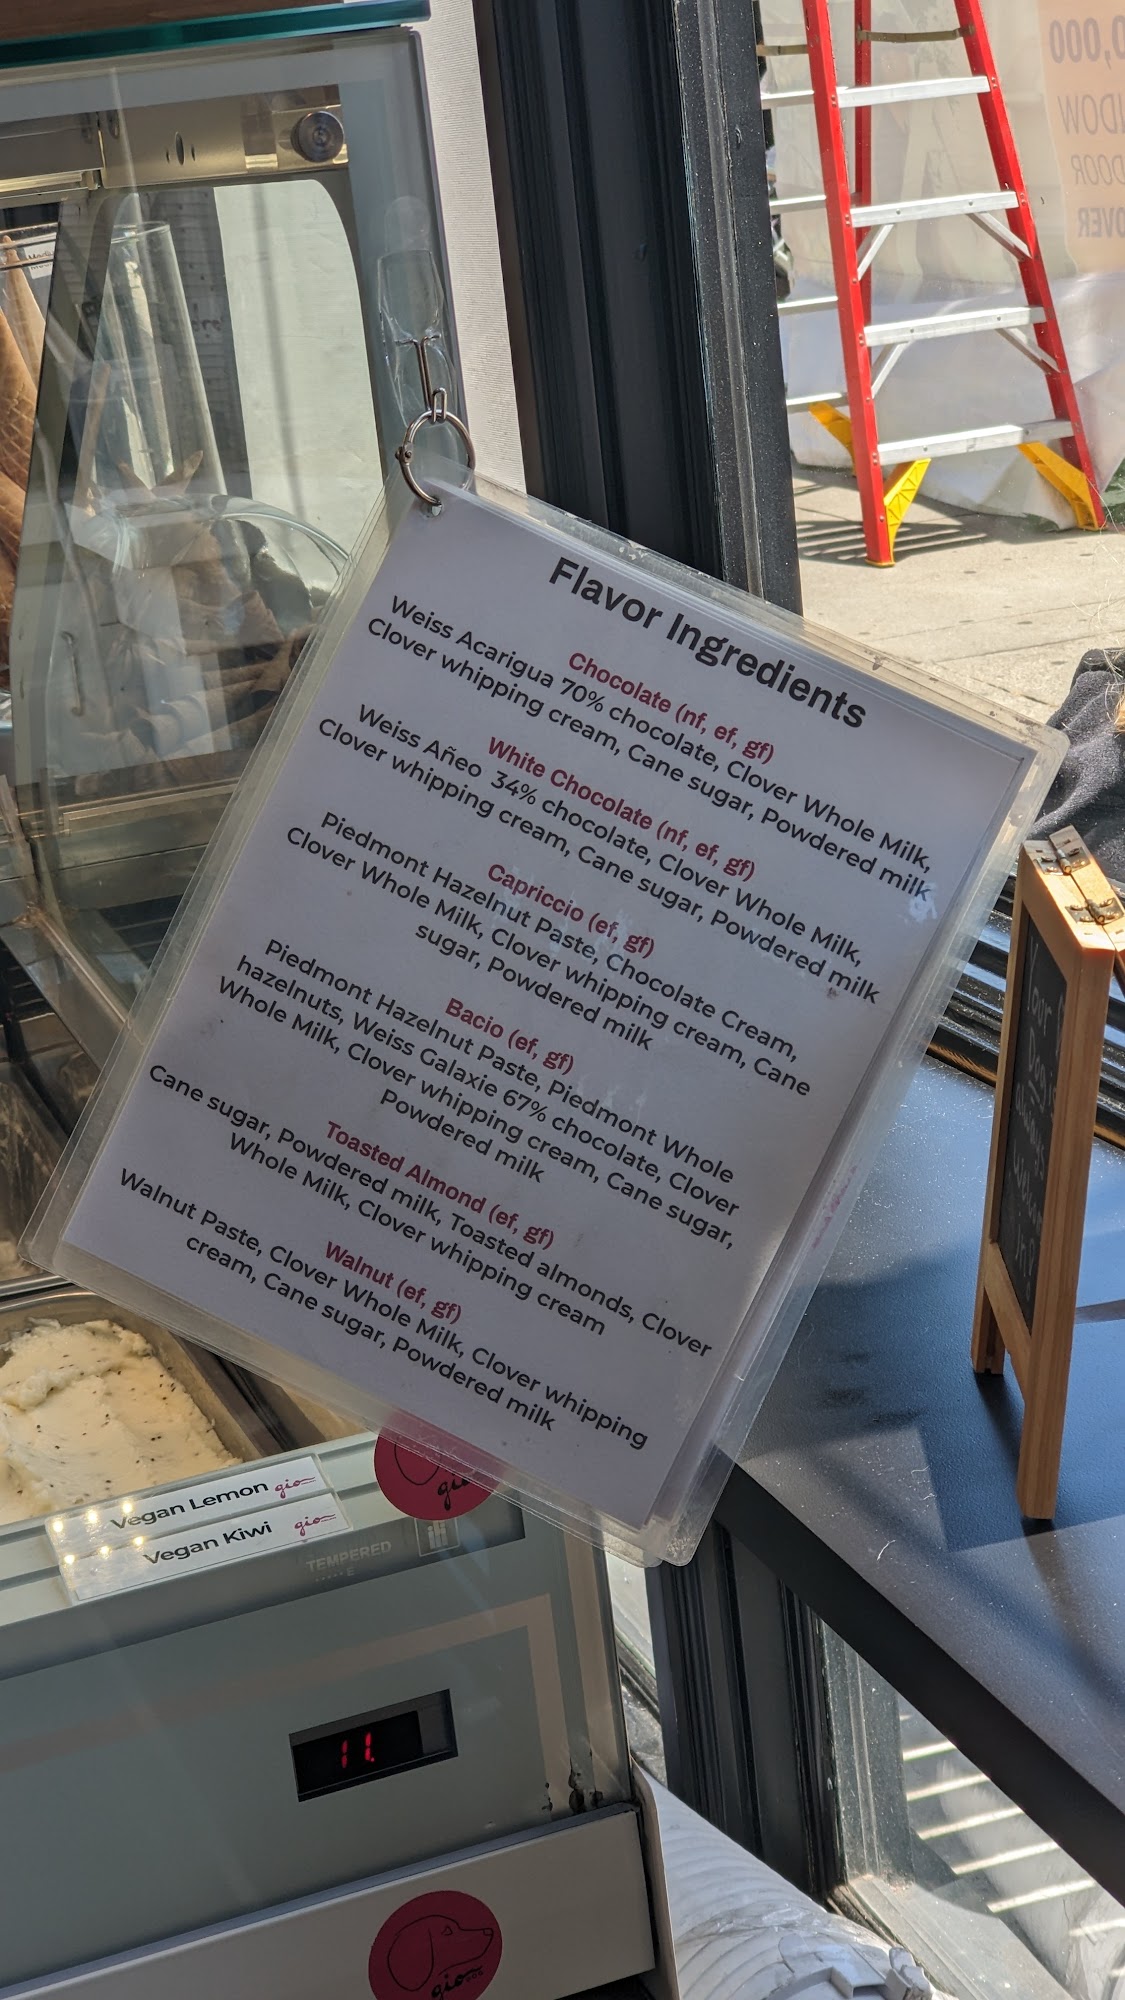 Flavor Ingredients
Chocolate (nf, ef, gf)
Weiss Acarigua 70% chocolate, Clover Whole Milk,
Clover whipping cream, Cane sugar, Powdered milk
White Chocolate (nf, ef, gf)
Weiss Añeo 34% chocolate, Clover Whole Milk,
Clover whipping cream, Cane sugar, Powdered milk
Capriccio (ef, gf)
Piedmont Hazelnut Paste, Chocolate Cream,
Clover Whole Milk, Clover whipping cream, Cane
sugar, Powdered milk
Bacio (ef, gf)
Piedmont Hazelnut Paste, Piedmont Whole
hazelnuts, Weiss Galaxie 67% chocolate, Clover
Whole Milk, Clover whipping cream, Cane sugar,
Powdered milk
Toasted Almond (ef, gf)
Cane sugar, Powdered milk, Toasted almonds, Clover
Whole Milk, Clover whipping cream
Walnut (ef, gf)
Walnut Paste, Clover Whole Milk, Clover whipping
cream, Cane sugar, Powdered milk
Vegan Lemon gio
Vegan Kiwi gio
gio
TEMPERED
11.
gio
Your
Dog is
always
welcome
in!
0,000
OVER